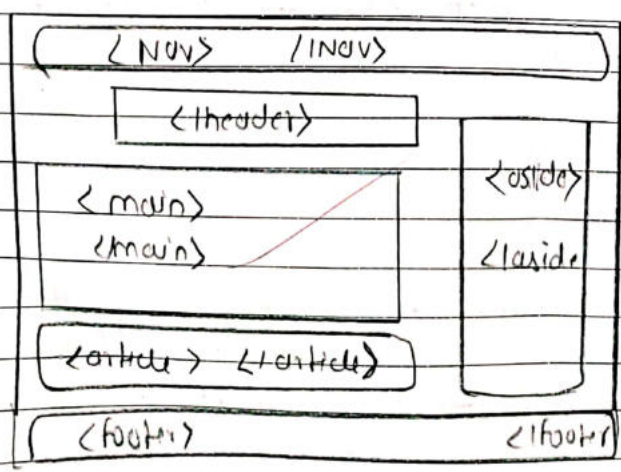 <Nav> /Nav>
</header>
<main>
</main>
<aside>
</aside
<article> </article>
<footer> </footer